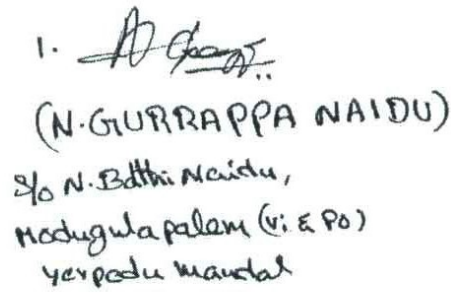 1.
(N.GURRAPPA NAIDU)
S/o N. Batthi Naidu,
Modugulapalem (Vi & Po)
Yerpedu Mandal